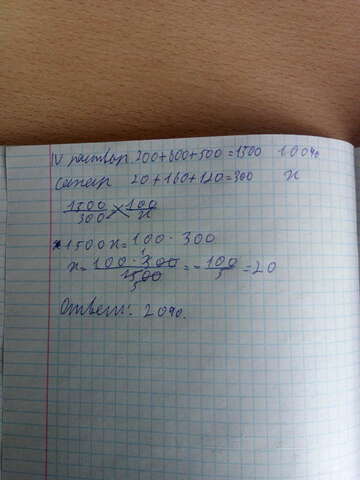 IV раствор 200+800+500=1500 100%
Сахар 20+160+120=300 x
1500/300 100/x
1500x=100·300
x=100·300/1500=-100/5=20
Ответ: 20%.